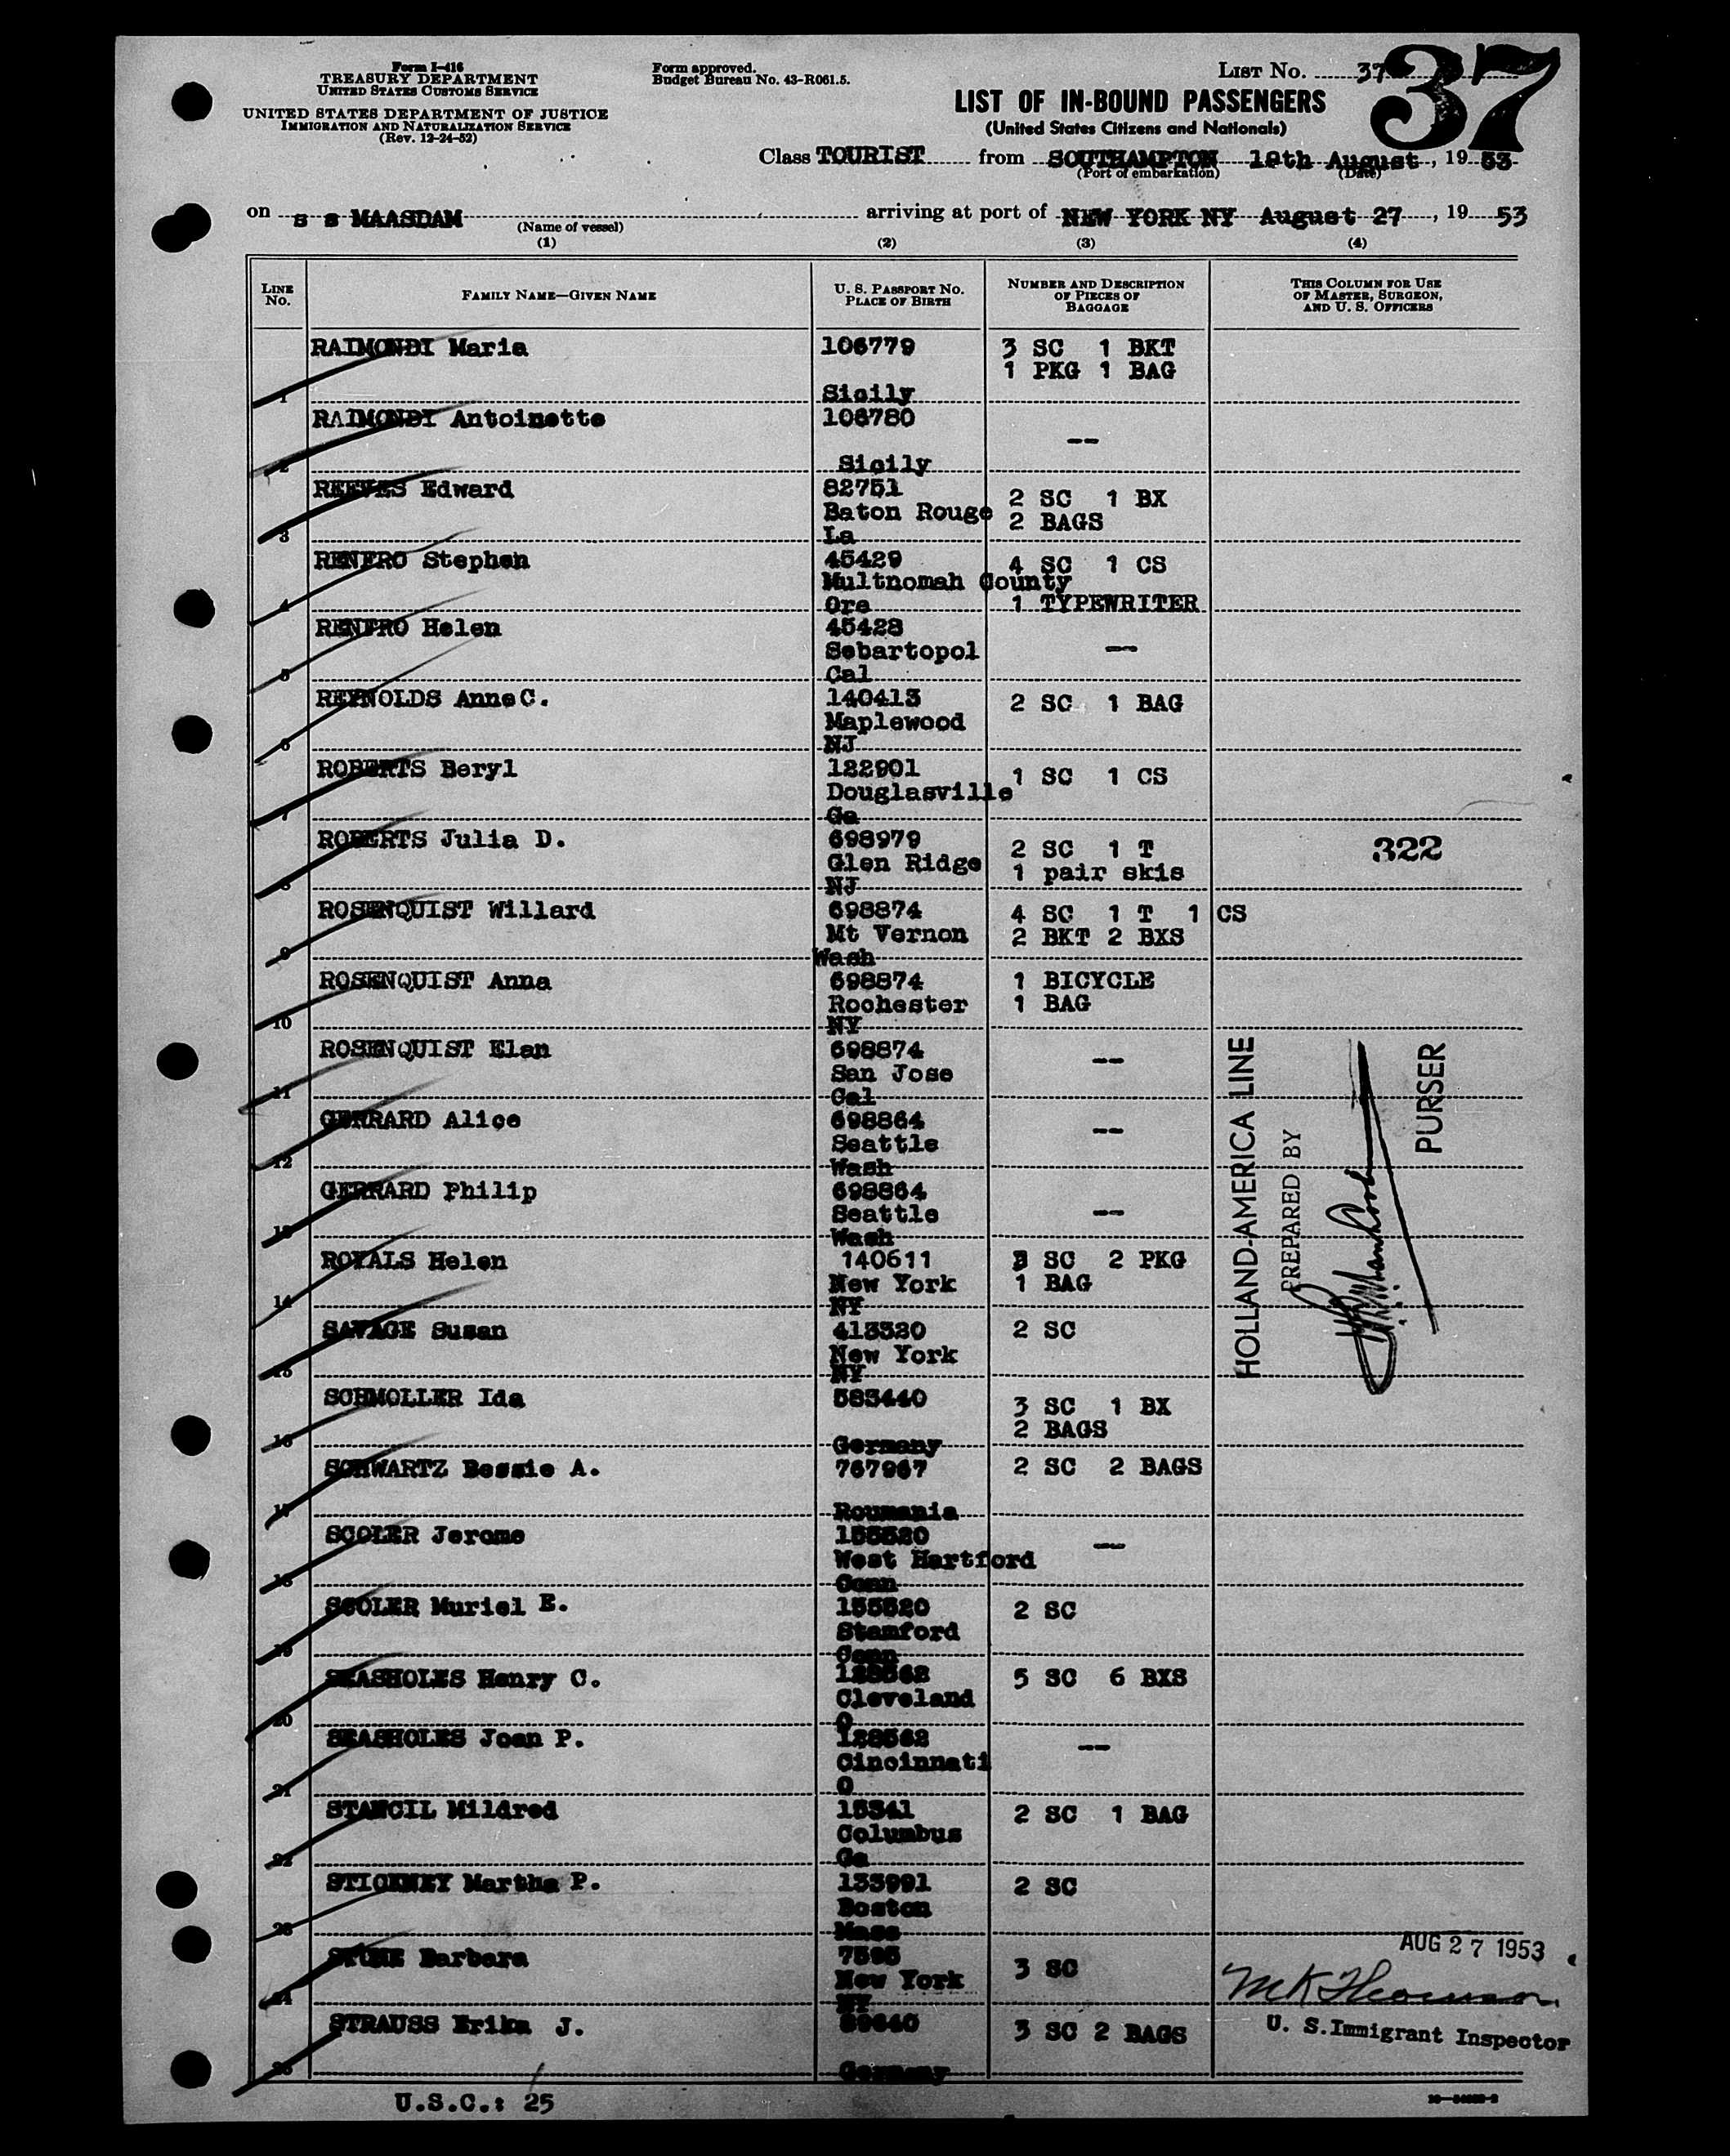 Form I-416
TREASURY DEPARTMENT
UNITED STATES CUSTOMS SERVICE
UNITED STATES DEPARTMENT OF JUSTICE
IMMIGRATION AND NATURALIZATION SERVICE
(Rev. 12-24-52)
Form approved.
Budget Bureau No. 43-R061.5.
LIST NO. 37
37
LIST OF IN-BOUND PASSENGERS
(United States Citizens and Nationals)
Class TOURIST from SOUTHAMPTON 19th August, 1953
(Port of embarkation) (Date)
on s s MAASDAM arriving at port of NEW YORK NY August 27, 1953
(Name of vessel)
(1) (2) (3) (4)
LINE NO.
FAMILY NAME—GIVEN NAME
U. S. PASSPORT NO.
PLACE OF BIRTH
NUMBER AND DESCRIPTION
OF PIECES OF
BAGGAGE
THIS COLUMN FOR USE
OF MASTER, SURGEON,
AND U. S. OFFICERS
RAIMONDI Maria 106779 3 SC 1 BKT
1 PKG 1 BAG
1 Sicily
RAIMONDI Antoinette 106780 --
2 Sicily
REEVES Edward 82751 2 SC 1 BX
Baton Rouge 2 BAGS
3 La
RENFRO Stephen 45429 4 SC 1 CS
Multnomah County
4 Ore 1 TYPEWRITER
RENFRO Helen 45428
Sebartopol --
5 Cal
REYNOLDS Anne C. 140413 2 SC 1 BAG
Maplewood
6 NJ
ROBERTS Beryl 122901 1 SC 1 CS
Douglasville
7 Ga
ROBERTS Julia D. 698979 2 SC 1 T 322
Glen Ridge 1 pair skis
8 NJ
ROSENQUIST Willard 698874 4 SC 1 T 1 CS
Mt Vernon 2 BKT 2 BXS
9 Wash
ROSENQUIST Anna 698874 1 BICYCLE
Rochester 1 BAG
10 NY
ROSENQUIST Elan 698874 --
San Jose
11 Cal
GERRARD Alice 698864 --
Seattle
12 Wash
GERRARD Philip 698864
Seattle --
13 Wash
ROYALS Helen 140611 3 SC 2 PKG
New York 1 BAG
14 NY
SAVAGE Susan 413320 2 SC
New York
15 NY
SCHMOLLER Ida 583440 3 SC 1 BX
2 BAGS
16 Germany
SCHWARTZ Bessie A. 767967 2 SC 2 BAGS
17 Roumania
SCOLER Jerome 155520 --
West Hartford
18 Conn
SCOLER Muriel E. 155520 2 SC
Stamford
19 Conn
SEASHOLES Henry C. 128562 5 SC 6 BXS
Cleveland
20 O
SEASHOLES Joan P. 128562 --
Cincinnati
21 O
STANCIL Mildred 15341 2 SC 1 BAG
Columbus
22 Ga
STICKNEY Martha P. 133991 2 SC
Boston
23 Mass
Barbara 7595 3 SC
New York
24 NY
STRAUSS Erika J. 89640 3 SC 2 BAGS
25 Germany
HOLLAND-AMERICA LINE
PREPARED BY
PURSER
AUG 27 1953
U. S. Immigrant Inspector
U.S.C.: 25